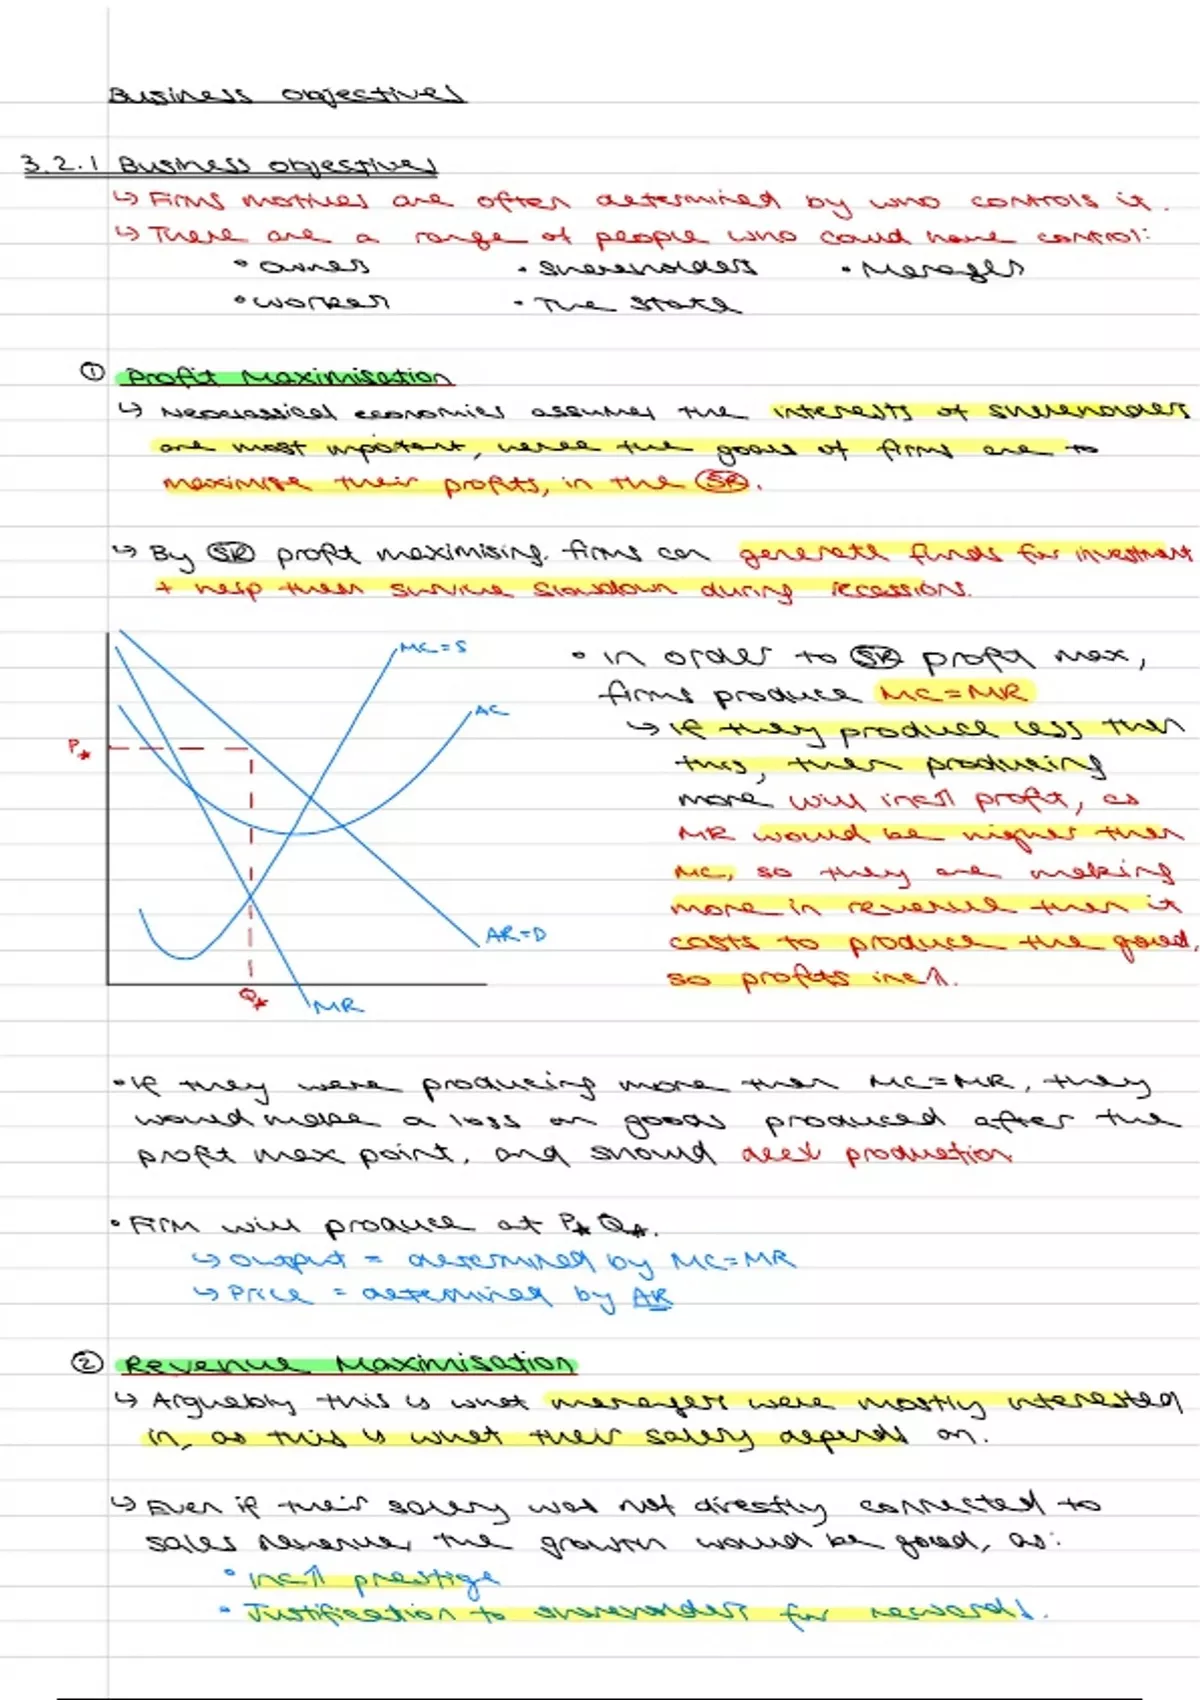 Business objectives
3.2.1 Business objectives
↳ Firms motives are often determined by who controls it.
↳ There are a range of people who could have control:
• Owner • Shareholders • Manager
• Worker • The State
① Profit Maximisation
↳ Neoclassical economics assumes the interests of shareholders
are most important, where the goals of firms are to
maximise their profits, in the SR.
↳ By SR profit maximising firms can generate funds for investment
+ help them survive slowdown during recessions.
MC=S
• In order to SR profit max,
firms produce MC=MR
AC
↳ If they produce less than
P*
this, then producing
more will inc↑ profit, as
MR would be higher than
MC, so they are making
more in revenue than it
AR=D
costs to produce the good,
so profits inc↑.
Q*
MR
• If they were producing more than MC=MR, they
would make a loss on goods produced after the
profit max point, and should production
• Firm will produce at P* Q*.
↳ Output = determined by MC=MR
↳ Price = determined by AR
② Revenue Maximisation
↳ Arguably this is what managers were mostly interested
in, as this is what their salary depends on.
↳ Even if their salary was not directly connected to
sales revenue, the growth would be good, as:
• Inc↑ prestige
• Justification to shareholders for rewards.